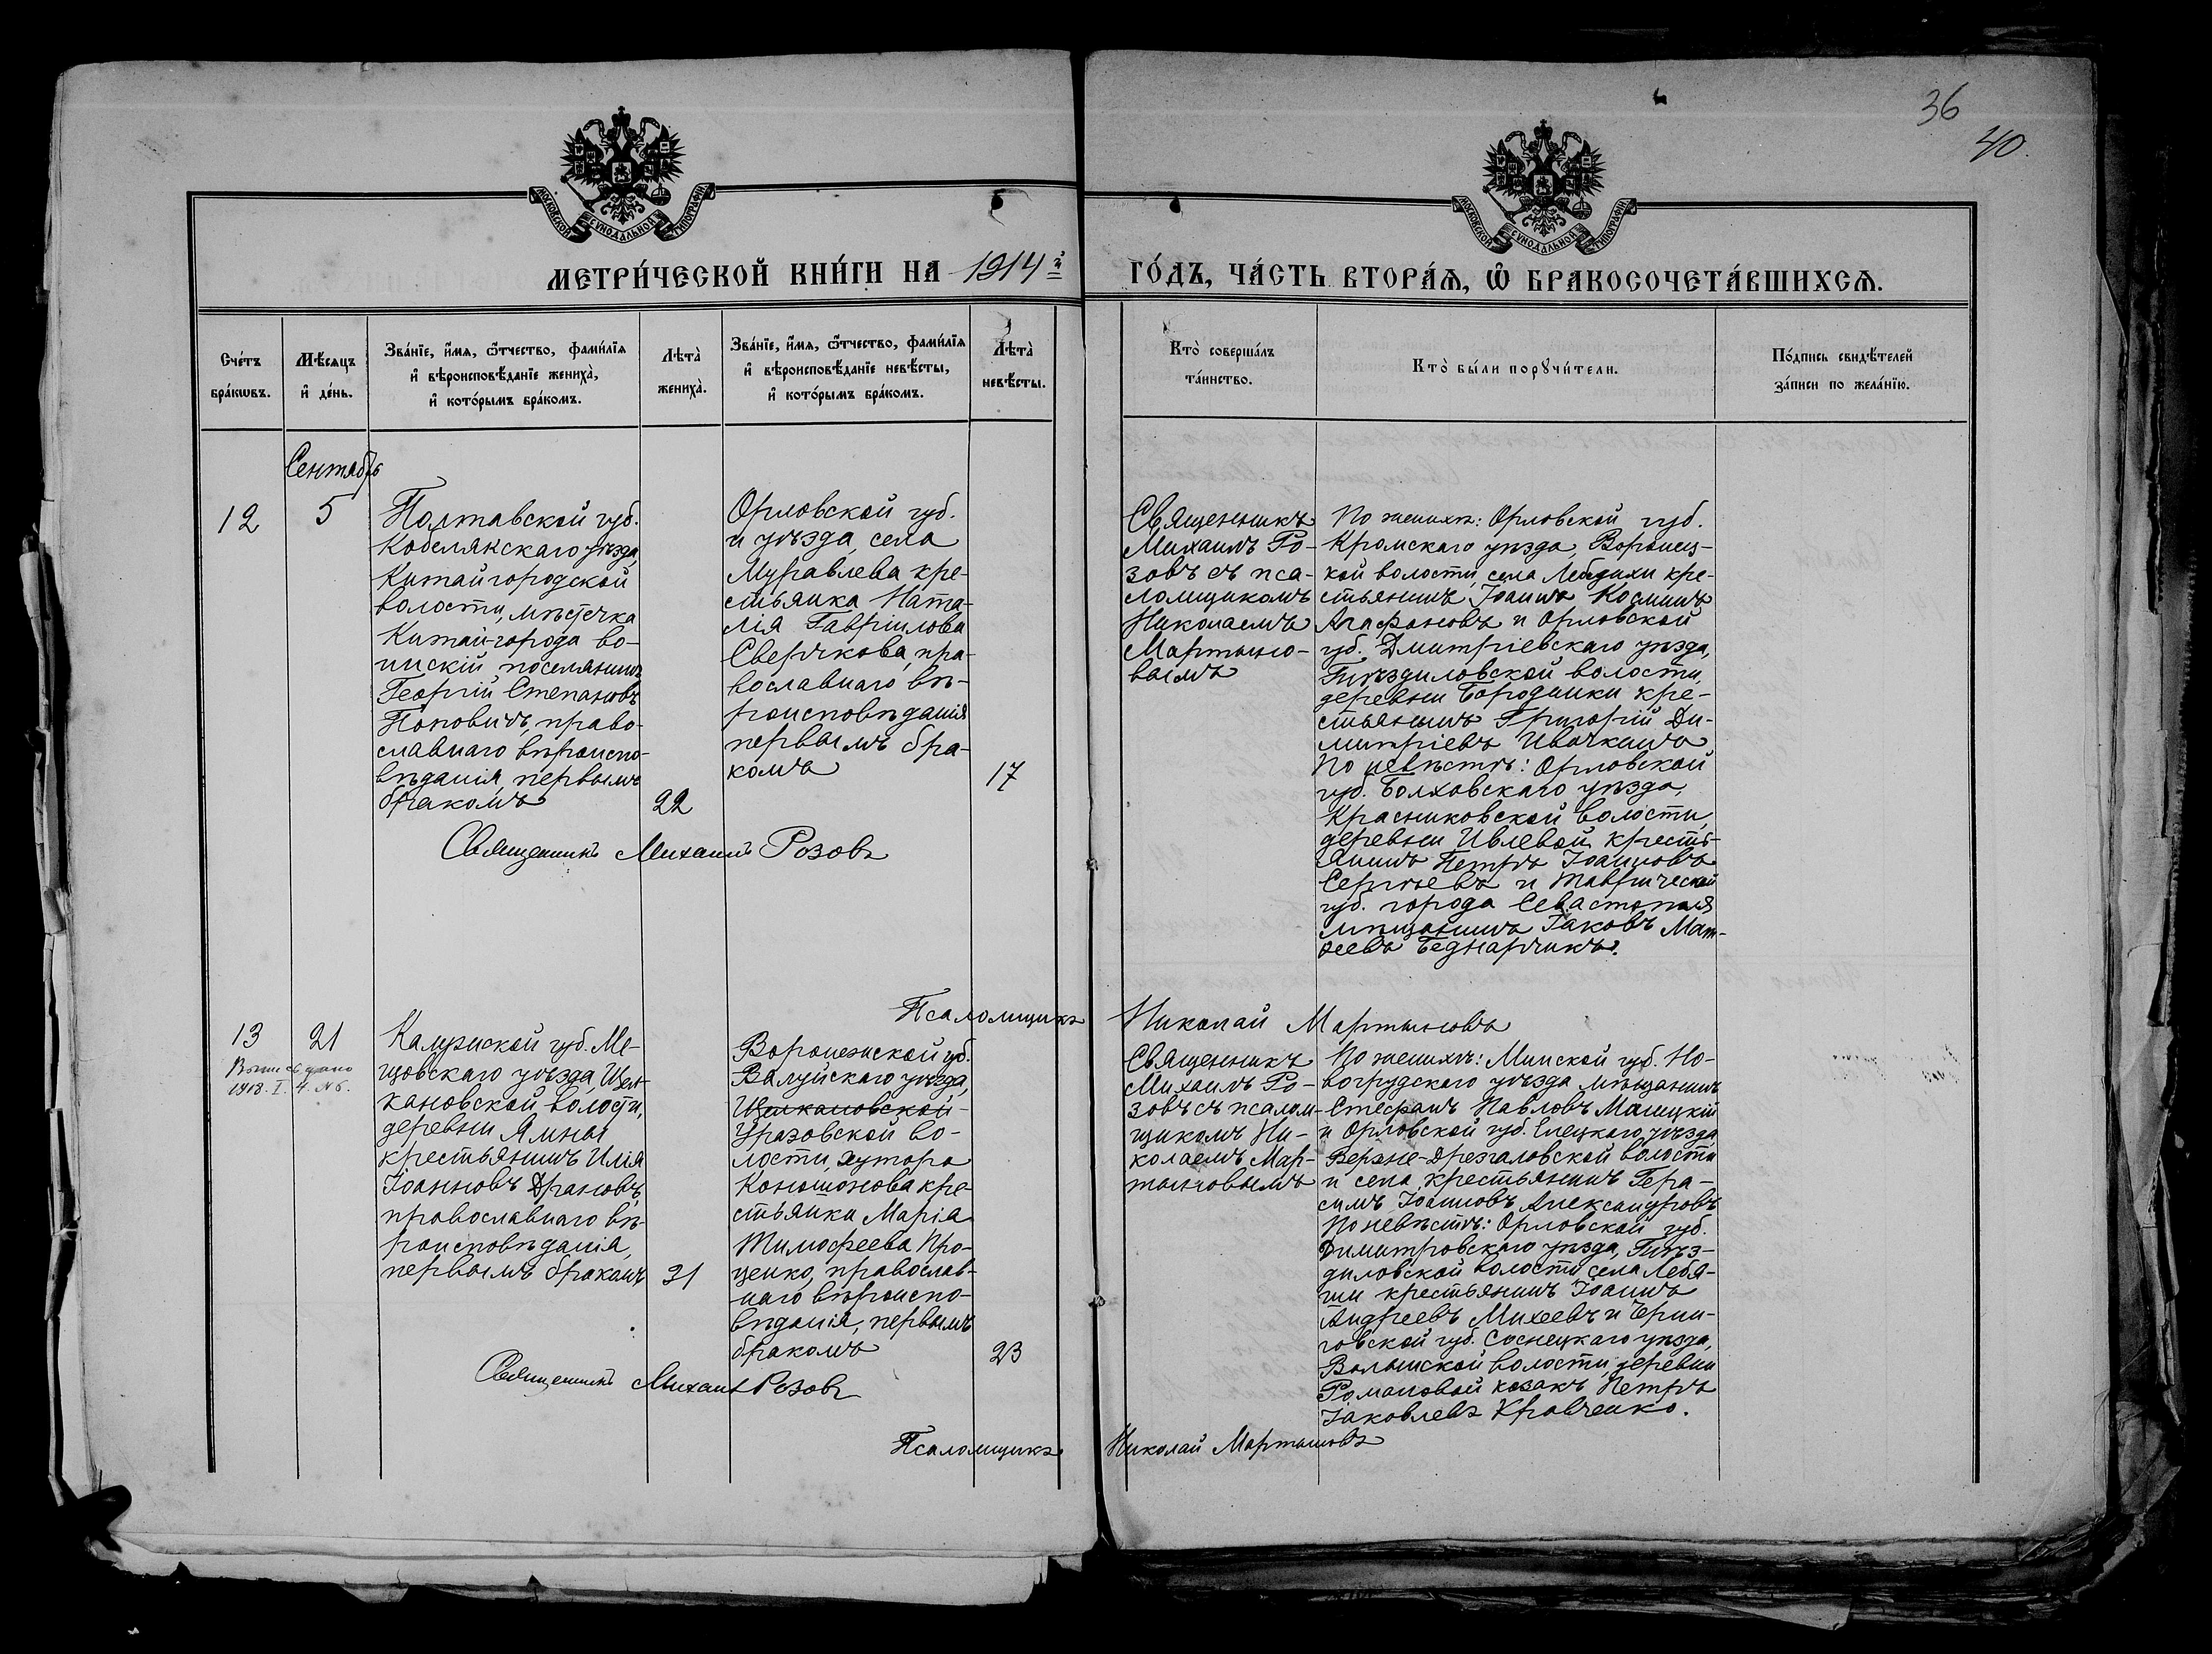 36
40.
МОСКОВСКОЙ СѴНОДАЛЬНОЙ ТИПОГРАФІИ
МОСКОВСКОЙ СѴНОДАЛЬНОЙ ТИПОГРАФІИ
МЕТРИ́ЧЕСКОЙ КНИ́ГИ НА 1914й ГО́ДЪ, ЧА́СТЬ ВТОРА́Я, Ѿ БРАКОСОЧЕТА́ВШИХСЯ.
Сче́тъ
бра́кѡвъ.
Мѣ́сяцъ
и҆ де́нь.
Зва́нїе, и҆́мя, ѻ҆́тчество, фами́лїя
и҆ вѣроисповѣ́данїе жениха̀,
и҆ кото́рымъ бра́комъ.
Лѣта̀
жениха̀.
Зва́нїе, и҆́мя, ѻ҆́тчество, фами́лїя
и҆ вѣроисповѣ́данїе невѣ́сты,
и҆ кото́рымъ бра́комъ.
Лѣта̀
невѣ́сты.
Кто̀ соверша́лъ
та́инство.
Кто̀ бы́ли порꙋчи́тели.
По́дпись свидѣ́телей
за́писи по жела́нїю.
Сентябрь
12
5
Полтавской губ.
Кобелякскаго уѣзда,
Китайгородской
волости, мѣстечка
Китай-города во-
инскій поселянинъ
Георгій Степановъ
Поповичъ, право-
славнаго вѣроиспо-
вѣданія, первымъ
бракомъ
22
Орловской губ.
и уѣзда, села
Муравлева кре-
стьянка Ната-
лія Гавріилова
Сверчкова, пра-
вославнаго вѣ-
роисповѣданія
первымъ бра-
комъ
17
Священникъ
Михаилъ Ро-
зовъ съ пса-
ломщикомъ
Николаемъ
Мартыно-
вымъ
По женихѣ: Орловской губ.
Кромскаго уѣзда, Воронец-
кой волости, села кре-
стьянинъ Іоаннъ Косминъ
Агафоновъ и Орловской
губ. Дмитріевскаго уѣзда,
Гнѣздиловской волости,
деревни Бородинки кре-
стьянинъ Григорій Ди-
митріевъ Ивочкинъ
По невѣстѣ: Орловской
губ. Болховскаго уѣзда,
Красниковской волости,
деревни Ивлевой кресть-
янинъ Петръ Іоанновъ
Сергѣевъ и Таврической
губ. города Севастополя
мѣщанинъ Іаковъ Мат-
ѳеевъ Беднарчикъ.
Священникъ Михаилъ Розовъ
Псаломщикъ Николай Мартыновъ
13
21
1918. I. 4. №6.
Калужской губ. Ме-
щовскаго уѣзда, Щел-
кановской волости,
деревни Ямны
крестьянинъ Илія
Іоанновъ Драновъ,
православнаго вѣ-
роисповѣданія,
первымъ бракомъ
21
Воронежской губ.
Валуйскаго уѣзда,
Щелкановской
Уразовской во-
лости, хутора
Коношонова кре-
стьянка Марія
Тимофеева Про-
ценко, православ-
наго вѣроиспо-
вѣданія, первымъ
бракомъ
23
Священникъ
Михаилъ Ро-
зовъ съ псалом-
щикомъ Ни-
колаемъ Мар-
тыновымъ
По женихѣ: Минской губ. Но-
вогрудскаго уѣзда мѣщанинъ
Стефанъ Павловъ Малецкій
и Орловской губ. Елецкаго уѣзда
Верхне-Дрезгаловской волости
и села, крестьянинъ Гера-
симъ Іоанновъ Александровъ
По невѣстѣ: Орловской губ.
Димитровскаго уѣзда, Гнѣз-
диловской волости, села Лебя-
жи крестьянинъ Іоаннъ
Андреевъ Михеевъ и Черни-
говской губ. Сосницкаго уѣзда,
Волынской волости, деревни
Романовой козакъ Петръ
Іаковлевъ Кравченко.
Священникъ Михаилъ Розовъ
Псаломщикъ Николай Мартыновъ